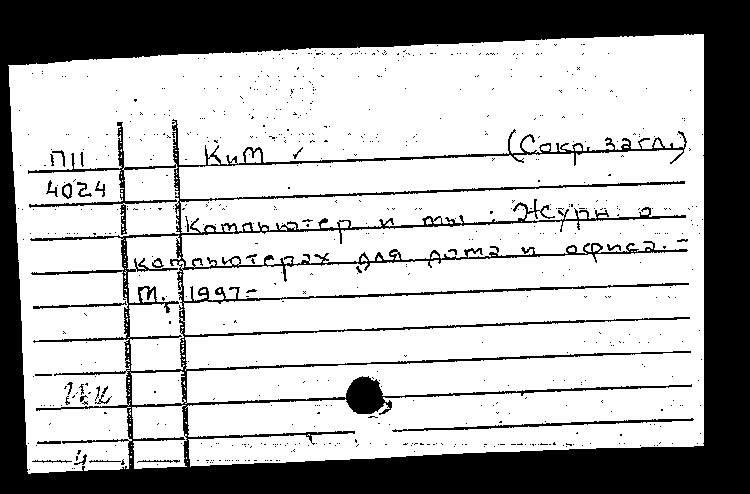 П11 КиМ ✓ (Сокр. загл.)
4024
Компьютер и ты : Журн о
компьютерах для дома и офиса. -
М., 1997-
4